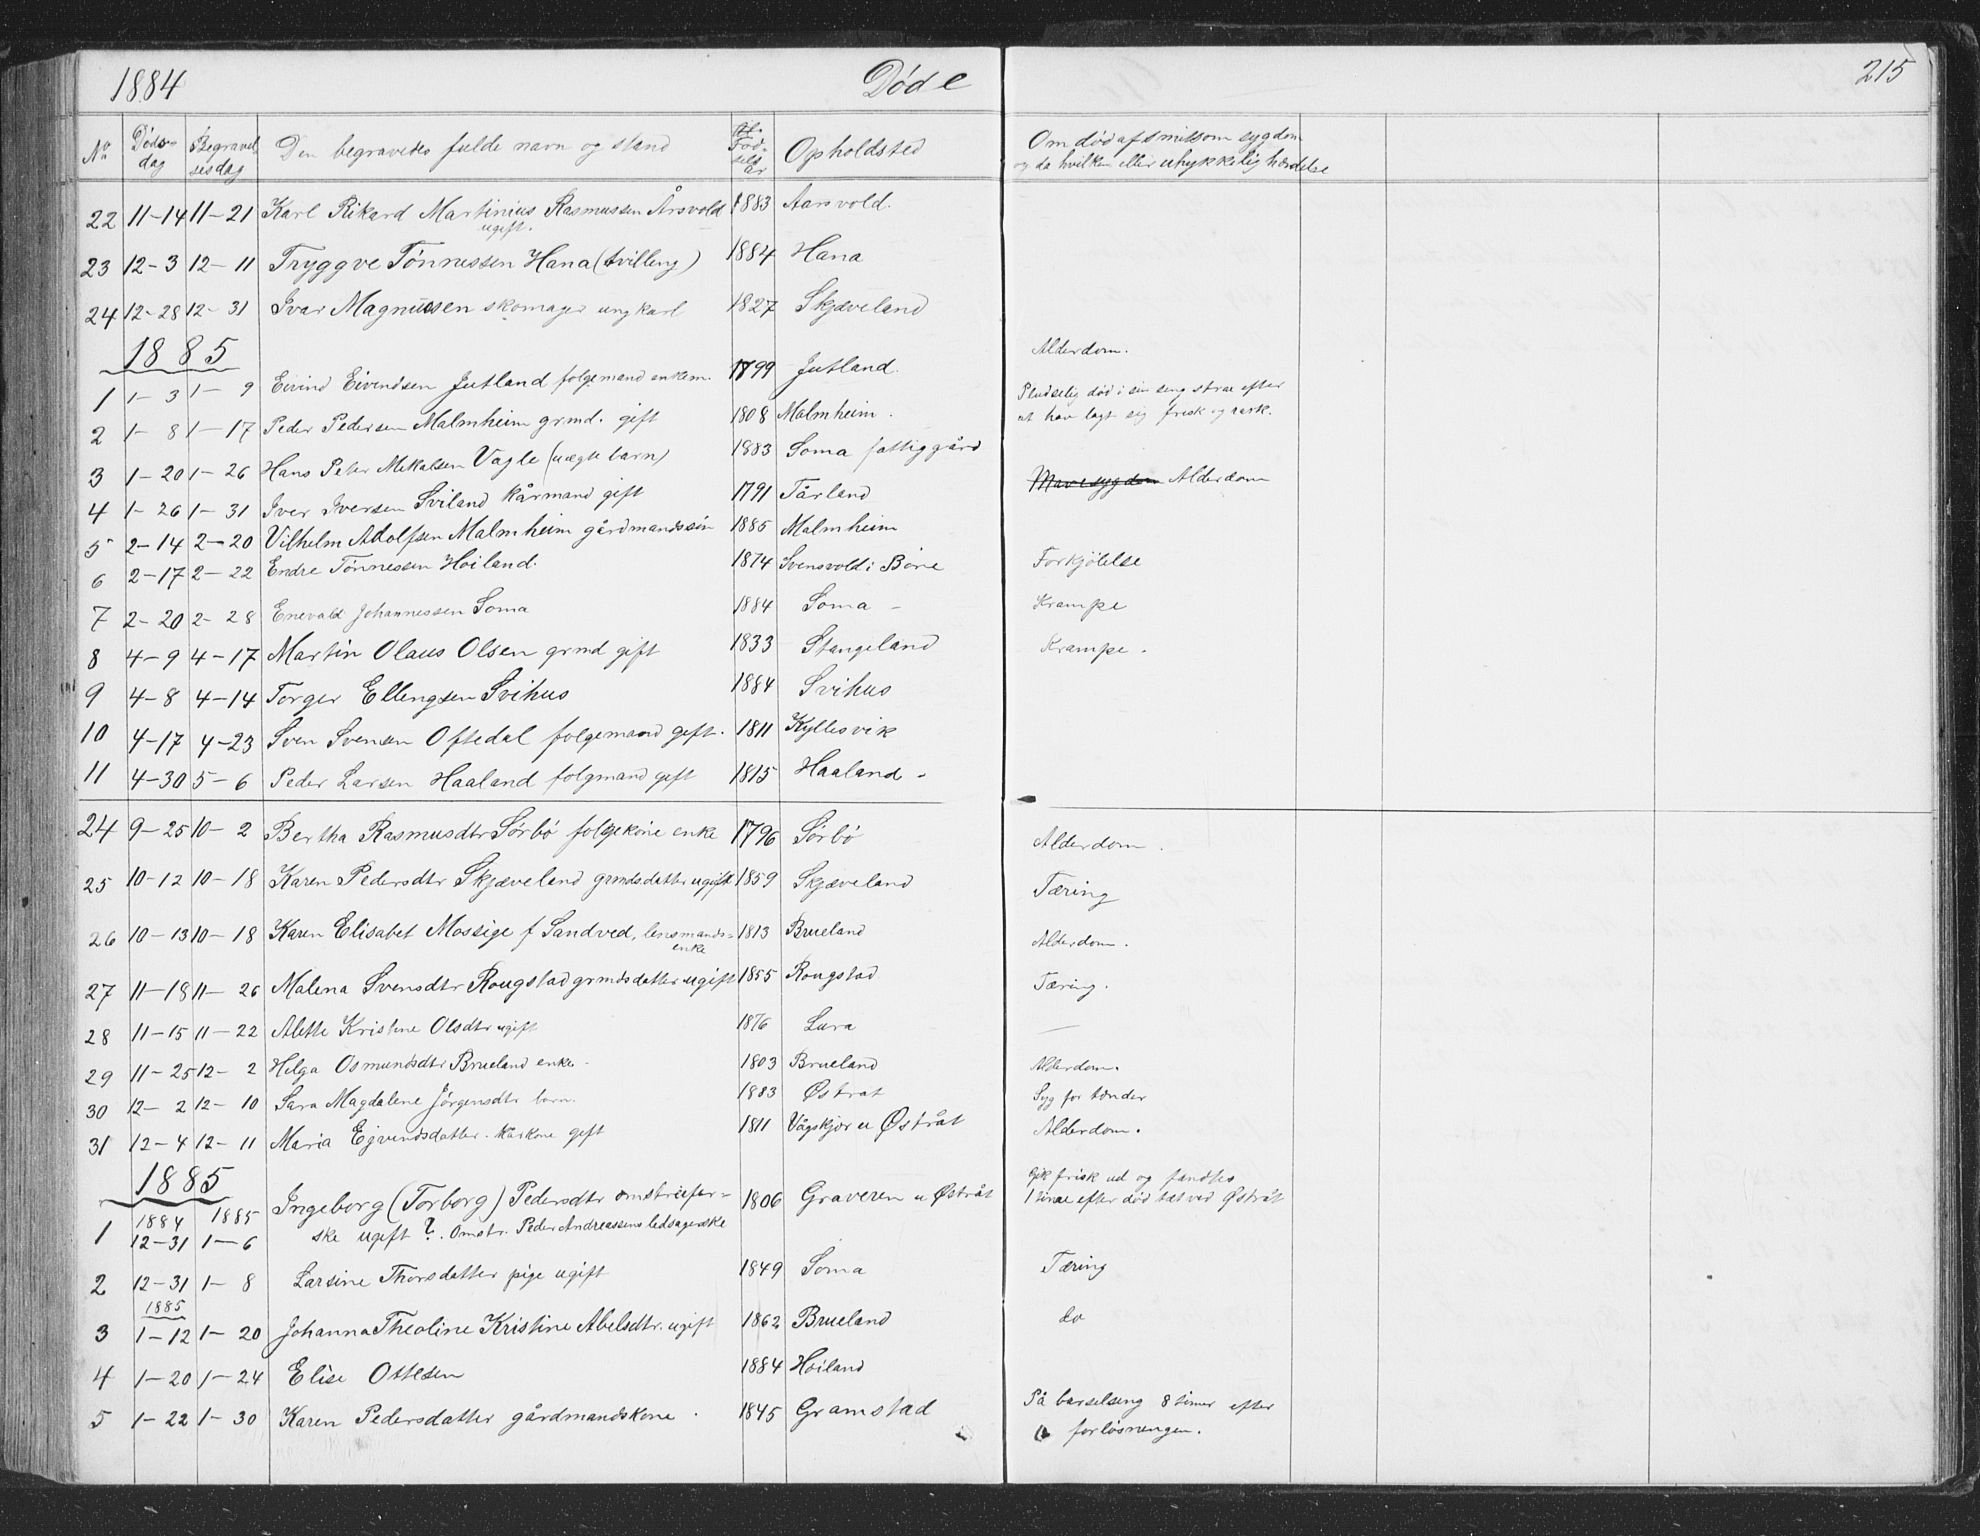 1884 Døde 215
No Døds- Begravel- Den begravedes fulde navn og stand Føds- Opholdsted Om død af smitsom sygdom
dag sesdag sels år og da hvilken eller uhykkelig hændelse
22 11-14 11-21 Karl Rikard Martinius Rasmussen Årsvold 1883 Aarsvold.
ugift.
23 12-3 12-11 Tryggve Tönnessen Hana (tvilling) 1884 Hana
24 12-28 12-31 Ivar Magnussen skomager ungkarl 1827 Skjæveland
1885
1 1-3 1-9 Eivind Eivendsen Jutland folgemand enkem. 1799 Jutland. Alderdom.
2 1-8 1-17 Peder Pedersen Malmheim grmd. gift 1808 Malmheim. Pludselig död i sin seng strax efter
at hav lagt sig frisk og rask.
3 1-20 1-26 Hans Peter Mikalsen Vagle (uægte barn) 1883 Soma fattiggård
4 1-26 1-31 Iver Iversen Sviland kårmand gift 1791 Tårland Mavesygdom Alderdom
5 2-14 2-20 Vilhelm Adolfsen Malmheim gårdmandssön 1885 Malmheim
6 2-17 2-22 Endre Tönnessen Höiland. 1874 Svensvold i Böre Forkjölelse
7 2-20 2-28 Enevald Johannessen Soma 1884 Soma - Krampe
8 4-9 4-17 Martin Olaus Olsen grmd gift 1833 Stangeland Krampe.
9 4-8 4-14 Torger Ellengsen Svihus 1884 Svihus
10 4-17 4-23 Sven Svensen Oftedal folgemand gift. 1811 Kyllesvik
11 4-30 5-6 Peder Larsen Haaland folgmand gift 1815 Haaland -
24 9-25 10-2 Bertha Rasmusdtr Sörbö folgekone enke 1796 Sörbö Alderdom.
25 10-12 10-18 Karen Pedersdtr Skjæveland grmdsdatter ugift 1859 Skjæveland Tæring
26 10-13 10-18 Karen Elisabet Mossige f Sandved, lensmands= 1813 Brueland Alderdom.
enke
27 11-18 11-26 Malena Svensdtr Rougstad grmdsdatter ugift 1855 Rougstad Tæring.
28 11-15 11-22 Alette Kristine Olsdtr ugift 1876 Lura —
29 11-25 12-2 Helga Osmundsdtr Brueland enke. 1803 Brueland Alderdom.
30 12-2 12-10 Sara Magdalene Jörgensdtr barn. 1883 Østrat Syg for tænder
31 12-4 12-11 Maria Ejvindsdatter. Kårkone gift 1811 Vågskjær u Østråt Alderdom.
1885 Gik frisk ud og fandtes
1 1884 1885 Ingeborg (Torborg) Pedersdtr omstreifer= 1806 Graveren u Østråt 1 time efter död tæt ved Østråt
12-31 1-6 ske ugift ?. Omstr. Peder Andreassens ledsagerske
2 12-31 1-8 Larsine Thorsdatter pige ugift 1849 Soma Tæring
1885
3 1-12 1-20 Johanna Theoline Kristine Abelsdtr. ugift 1862 Brueland do
4 1-20 1-24 Elise Ottesen 1884 Höiland
5 1-22 1-30 Karen Pedersdatter gårdmandskone. 1845 Gramstad På barselseng 8 timer efter
forlösningen.